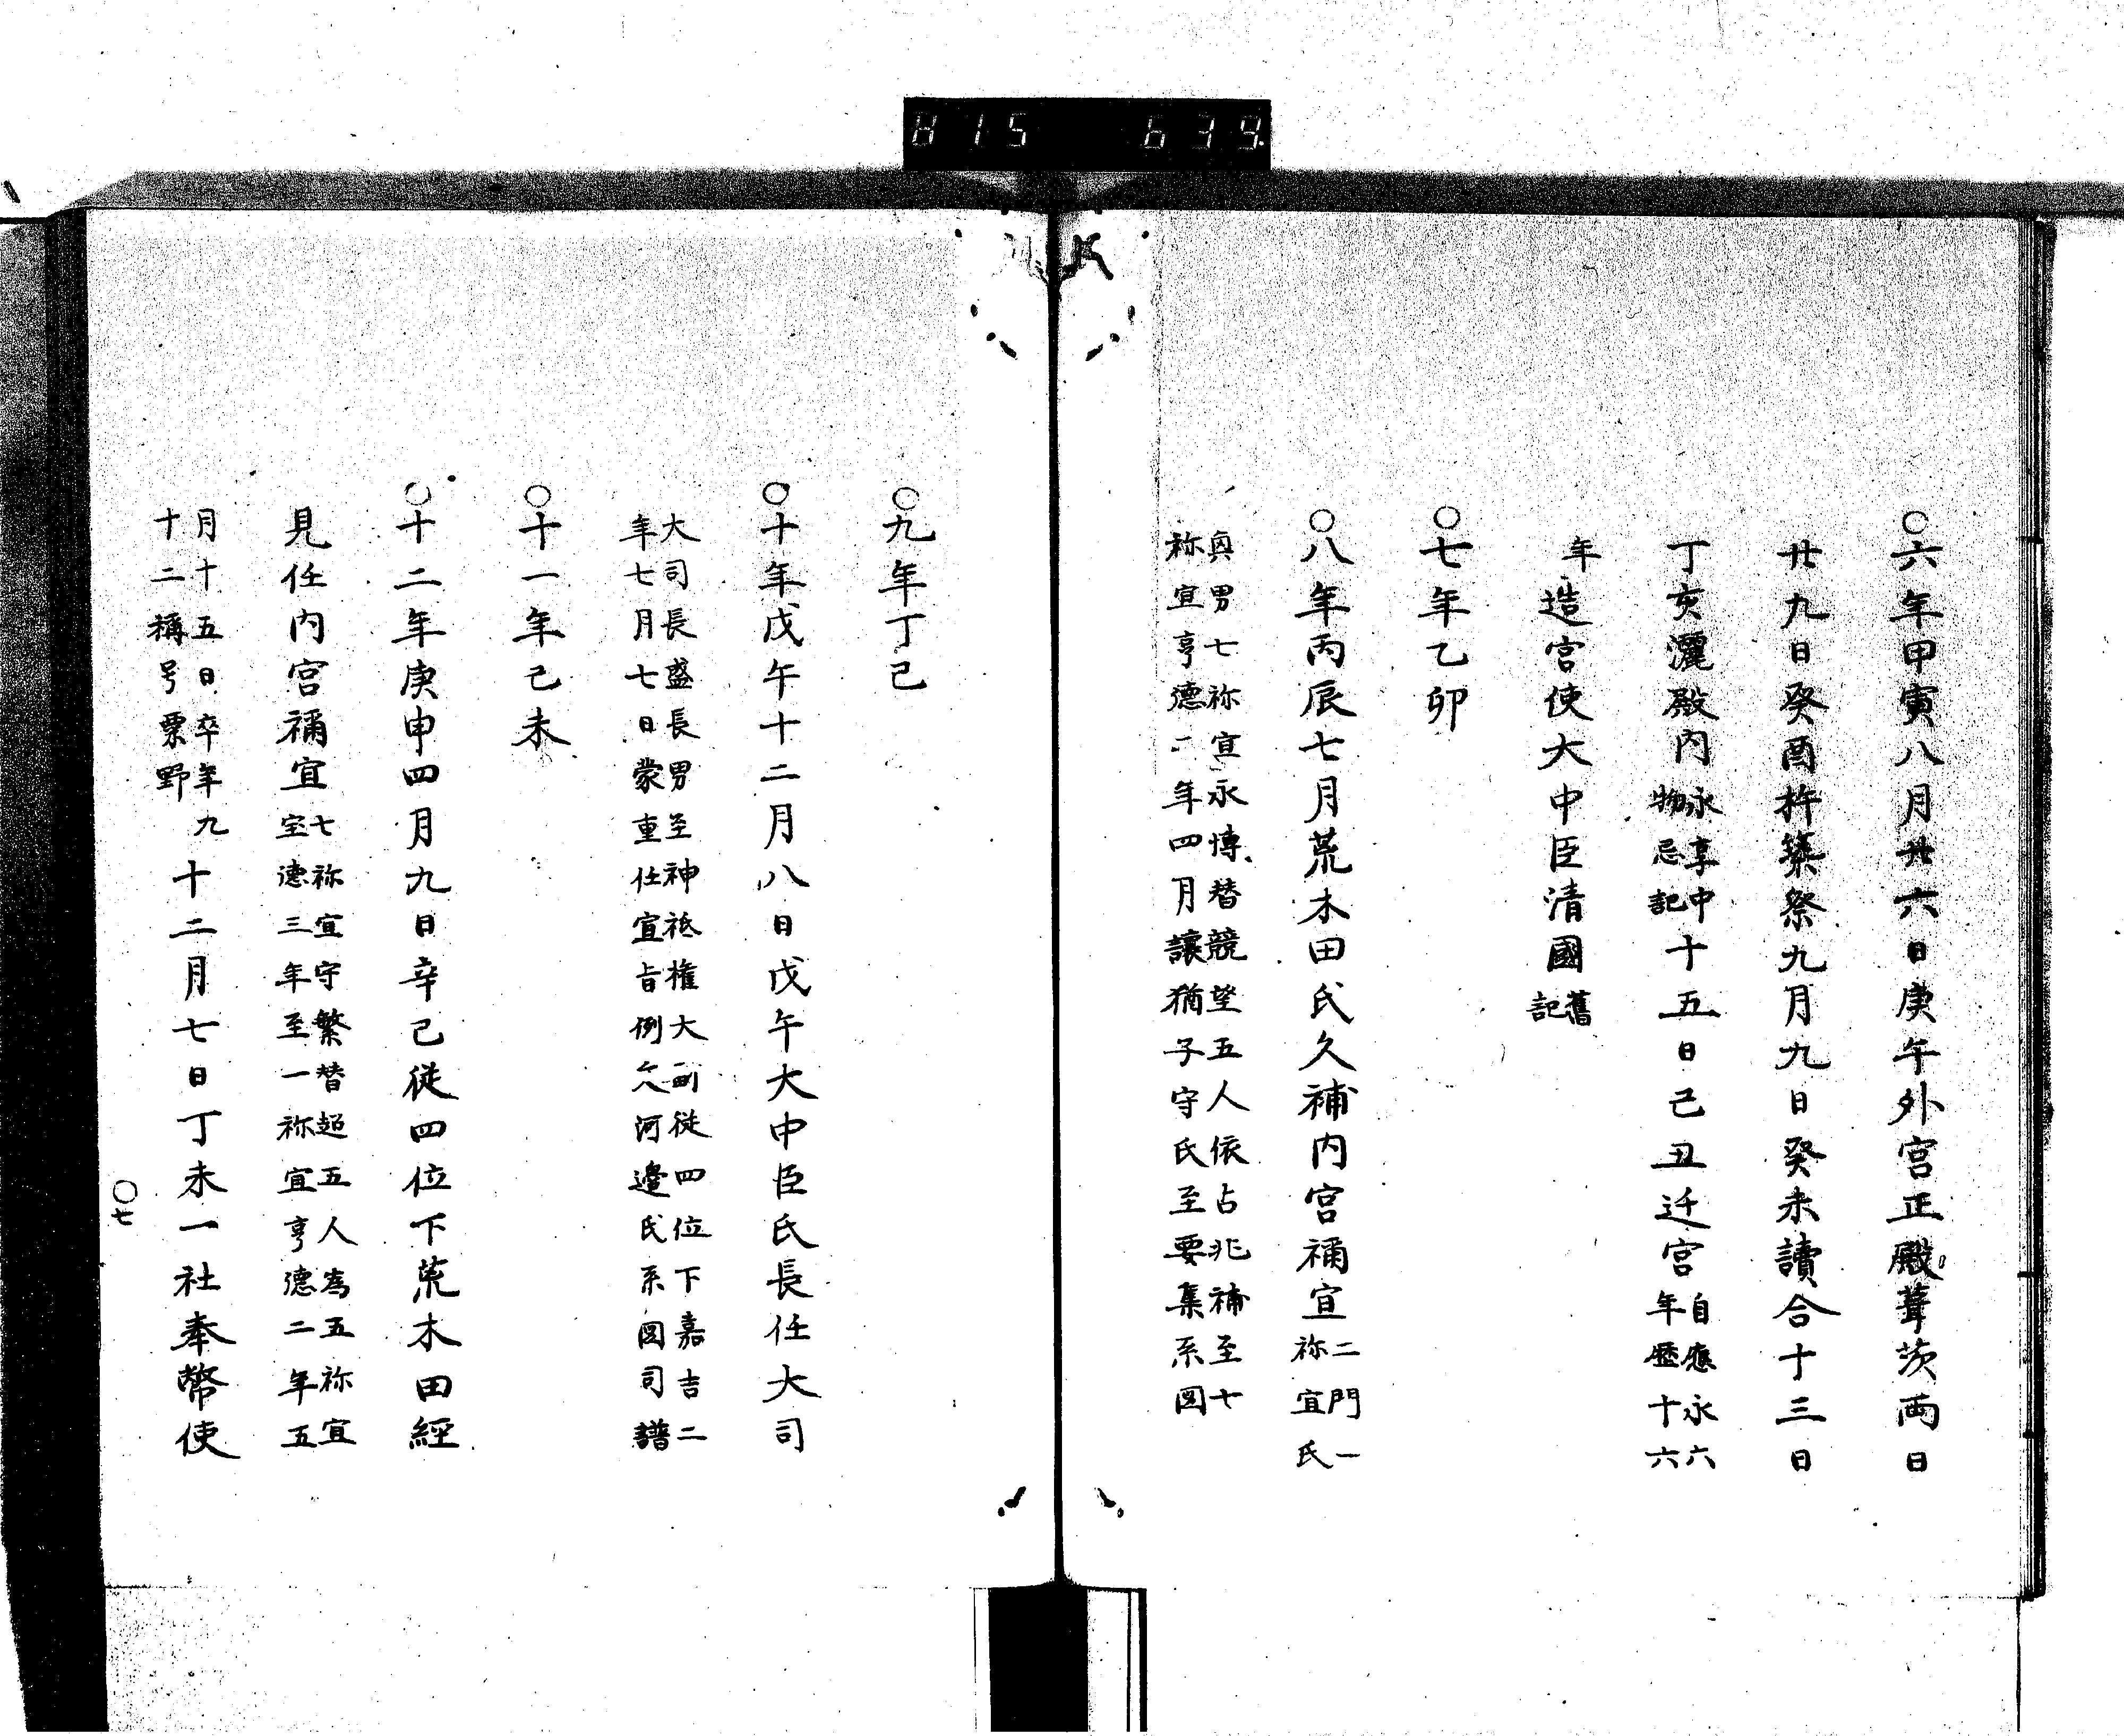 815 639.
○六年甲寅八月廿六日庚午外宮正殿葺茨両日
廿九日癸酉杵築祭九月九日癸未讀合十三日
丁亥灑殿内永享中物忌記十五日己丑迁宮自應永六年歷十六
年造宮使大中臣清國舊記
○七年乙卯
○八年丙辰七月荒木田氏久補内宮禰宜二門一祢宜氏
奥男七祢宜永博替競望五人依占兆補至七
祢宜享德二年四月讓猶子守氏至要集系図
○九年丁巳
○十年戊午十二月八日戊午大中臣氏長任大司
大司長盛長男至神祇権大副従四位下嘉吉二
年七月七日蒙重任宣旨例文河邊氏系図司譜
○十一年己未
○十二年庚申四月九日辛己従四位下荒木田經
見任内宮禰宜七祢宜守繁替超五人為五祢宜宝德三年至一祢宜享德二年五
月十五日卒年九十二稱号粟野十二月七日丁未一社奉幣使
○七